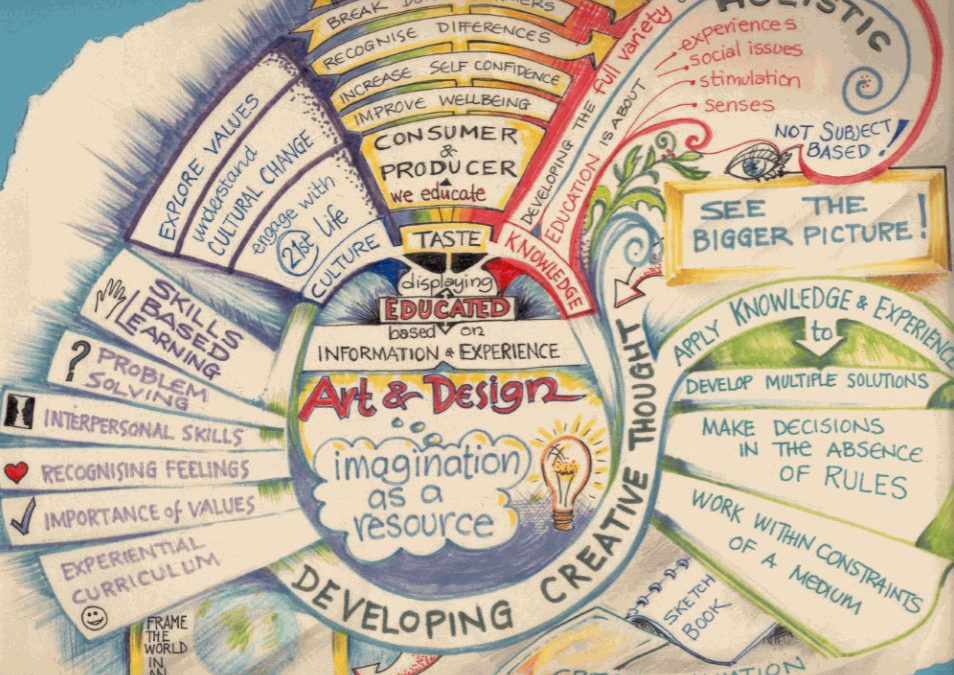 BREAK
RECOGNISE DIFFERENCES
INCREASE SELF CONFIDENCE
IMPROVE WELLBEING
CONSUMER
&
PRODUCER
we educate
TASTE
displaying
EDUCATED
based on
INFORMATION & EXPERIENCE
Art & Design
imagination
as a
resource
DEVELOPING CREATIVE THOUGHT
EXPLORE VALUES
understand
CULTURAL CHANGE
engage with
21st life
CULTURE
SKILLS
BASED
LEARNING
? PROBLEM
SOLVING
INTERPERSONAL SKILLS
RECOGNISING FEELINGS
IMPORTANCE of VALUES
EXPERIENTIAL
CURRICULUM
FRAME
THE
WORLD
IN
AN
KNOWLEDGE
DEVELOPING THE full variety
EDUCATION IS ABOUT
HOLISTIC
experiences
social issues
stimulation
senses
NOT SUBJECT
BASED!
SEE THE
BIGGER PICTURE!
APPLY KNOWLEDGE & EXPERIENCE
to
DEVELOP MULTIPLE SOLUTIONS
MAKE DECISIONS
IN THE ABSENCE
OF RULES
WORK WITHIN CONSTRAINTS
OF A MEDIUM
SKETCH
BOOK